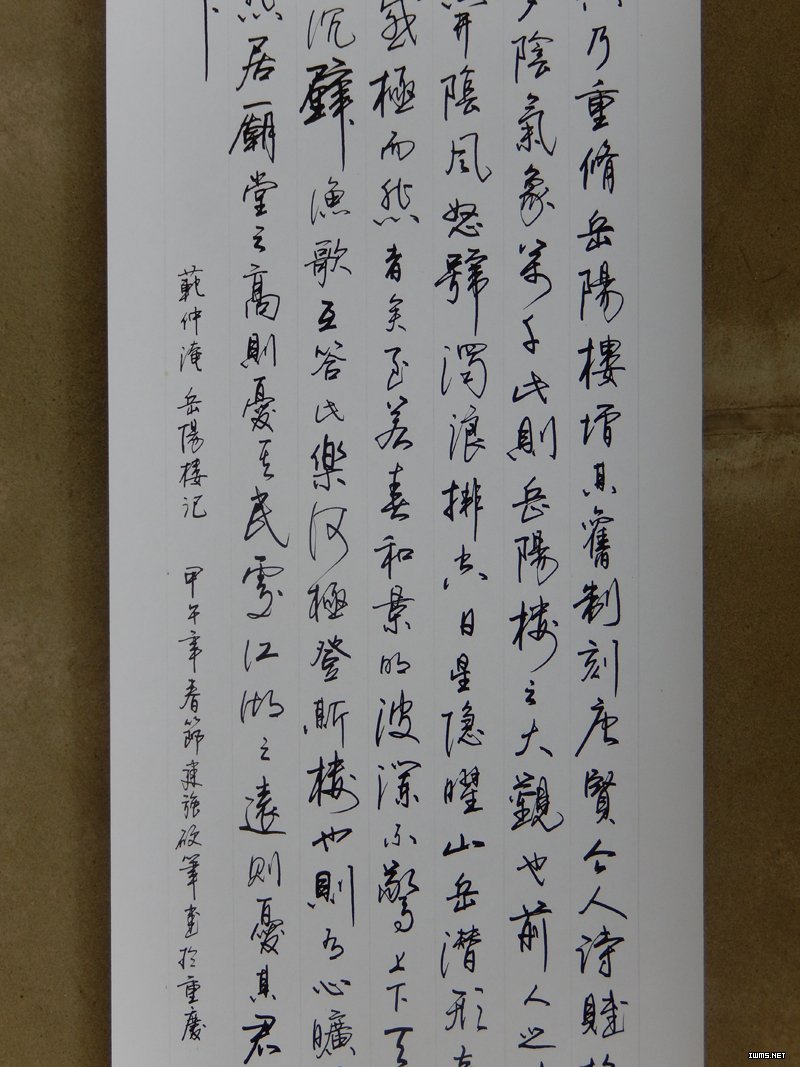 乃重脩岳陽樓增其舊制刻唐賢今人詩賦
陰氣象萬千此則岳陽樓之大觀也前人之
陰風怒號濁浪排空日星隱曜山岳潛形
感極而悲者矣至若春和景明波瀾不驚上下天
沉璧漁歌互答此樂何極登斯樓也則有心曠
居廟堂之高則憂其民處江湖之遠則憂其君
範仲淹 岳陽樓记 甲午年春節建強硬筆書於重慶
IWMS.NET